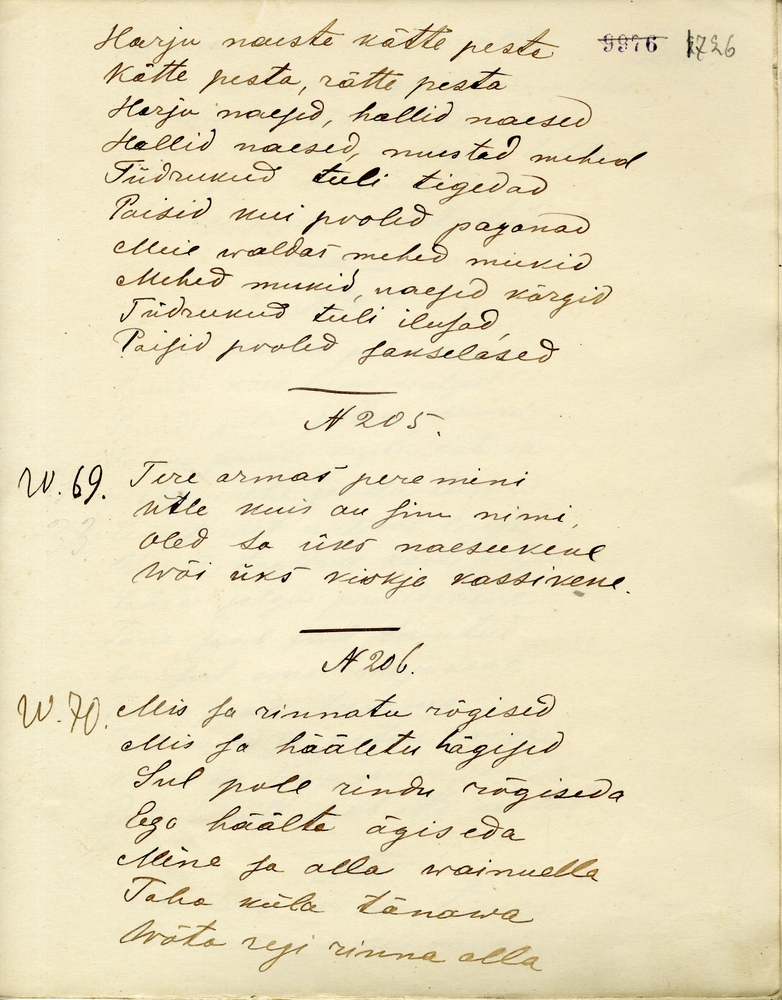 Harju naeste kätte pesta 9976 1726
Kätte pesta, rätte pesta
Harju naesed, hallid naesed
Hallid naesed, mustad mehed
Tüdrukud tuli tigedad
Poisid kui pooled paganad
Meie waldas mehed miikid
Mehed mukid, naesed kärgid
Tüdrukud tuli ilusad,
Poisid pooled sakselased
N 205.
W. 69. Tere armas peremini
Ütle kuis on sinu nimi,
Oled sa üks naesukene
Wõi üks kiskja kassikene.
N 206.
W. 70. Mis sa rinnatu rögised
Mis sa hääletu hägised
Sul pole rindu rögiseda
Ega häälte ägiseda
Mine sa alla wainuella
Taha küla tänawa
Wõta regi rinna alla